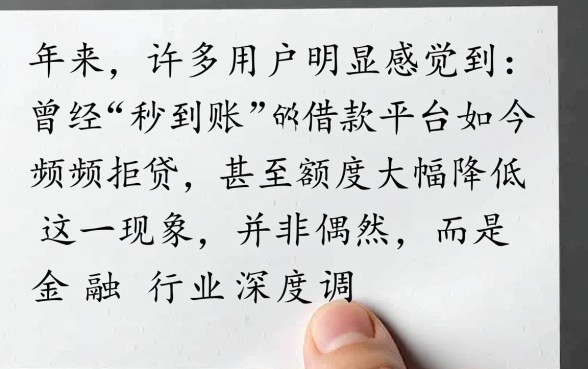 年来，许多用户明显感觉到：
曾经“秒到账”的借款平台如今
频频拒贷，甚至额度大幅降低
这一现象，并非偶然，而是
金融 行业深度调